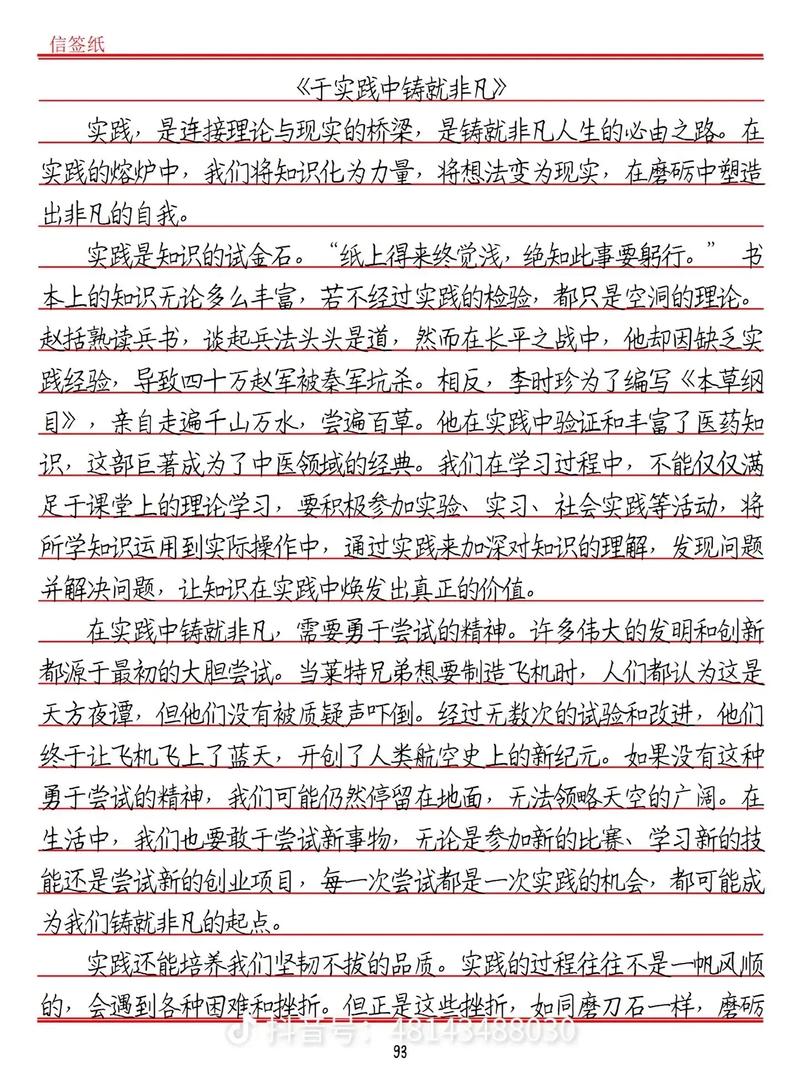 信签纸
《于实践中铸就非凡》
实践，是连接理论与现实的桥梁，是铸就非凡人生的必由之路。在
实践的熔炉中，我们将知识化为力量，将想法变为现实，在磨砺中塑造
出非凡的自我。
实践是知识的试金石。“纸上得来终觉浅，绝知此事要躬行。” 书
本上的知识无论多么丰富，若不经过实践的检验，都只是空洞的理论。
赵括熟读兵书，谈起兵法头头是道，然而在长平之战中，他却因缺乏实
践经验，导致四十万赵军被秦军坑杀。相反，李时珍为了编写《本草纲
目》，亲自走遍千山万水，尝遍百草。他在实践中验证和丰富了医药知
识，这部巨著成为了中医领域的经典。我们在学习过程中，不能仅仅满
足于课堂上的理论学习，要积极参加实验、实习、社会实践等活动，将
所学知识运用到实际操作中，通过实践来加深对知识的理解，发现问题
并解决问题，让知识在实践中焕发出真正的价值。
在实践中铸就非凡，需要勇于尝试的精神。许多伟大的发明和创新
都源于最初的大胆尝试。当莱特兄弟想要制造飞机时，人们都认为这是
天方夜谭，但他们没有被质疑声吓倒。经过无数次的试验和改进，他们
终于让飞机飞上了蓝天，开创了人类航空史上的新纪元。如果没有这种
勇于尝试的精神，我们可能仍然停留在地面，无法领略天空的广阔。在
生活中，我们也要敢于尝试新事物，无论是参加新的比赛、学习新的技
能还是尝试新的创业项目，每一次尝试都是一次实践的机会，都可能成
为我们铸就非凡的起点。
实践还能培养我们坚韧不拔的品质。实践的过程往往不是一帆风顺
的，会遇到各种困难和挫折。但正是这些挫折，如同磨刀石一样，磨砺
抖音号：48143488030
93